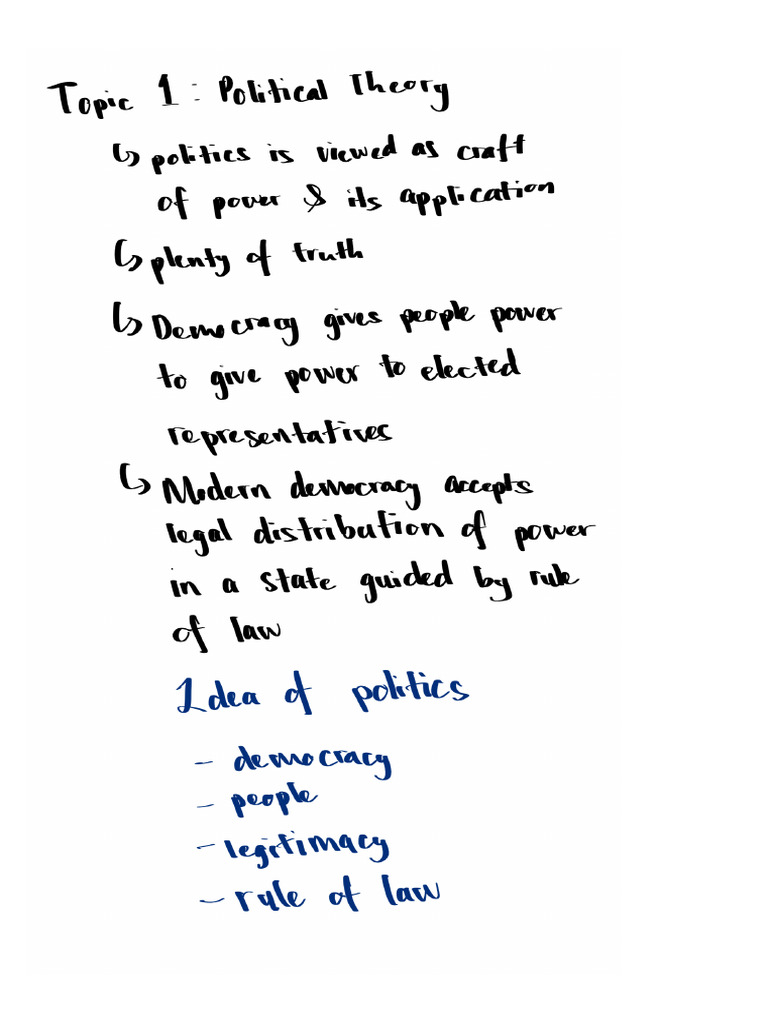 Topic 1 : Political Theory
↳ politics is viewed as craft
of power & its application
↳ plenty of truth
↳ Democracy gives people power
to give power to elected
representatives
↳ Modern democracy accepts
legal distribution of power
in a state guided by rule
of law
Idea of politics
- democracy
- people
- legitimacy
- rule of law